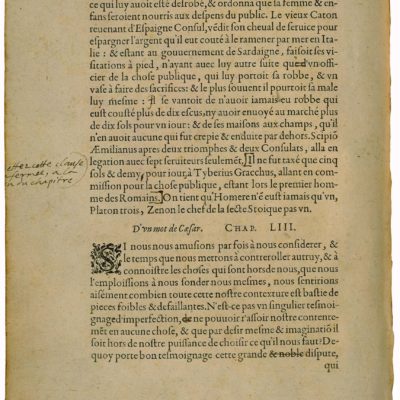 ce qui luy auoit esté desrobé, & ordonna que sa femme & en-
fans seroient nourris aux despens du public. Le vieux Caton
reuenant d'Espaigne Consul, védit son cheual de seruice pour
espargner l'argent qu'il eut couté à le ramener par mer en Ita-
lie : & estant au gouuernement de Sardaigne, faisoit ses vi-
sitations à pied, n'ayant auec luy autre suite qu'vn offi-
cier de la chose publique, qui luy portoit sa robbe, & vn
vase à faire des sacrifices: & le plus souuent il pourtoit sa male
luy mesme : Il se vantoit de n'auoir iamais eu robbe qui
eust cousté plus de dix escus, ny auoir enuoyé au marché plus
de dix sols pour vn iour : & de ses maisons aux champs, qu'il
n'en auoit aucune qui fut crepie & enduite par dehors. Scipiõ
Æmilianus apres deux triomphes & deux Consulats, alla en
legation auec sept seruiteurs seulemẽt, Il ne fut taxé que cinq
sols & demy, pour iour, à Tyberius Gracchus, allant en com-
mission pour la chose publique, estant lors le premier homme
des Romains. On tient qu'Homere n'é eust iamais qu'vn,
Platon trois, Zenon le chef de la secte Stoique pas vn.
cette clause
a la
du chapitre
D'vn mot de Cæsar. CHAP. LIII.
SI nous nous amusions par fois à nous considerer, &
le temps que nous mettons à contreroller autruy, & à
connoistre les choses qui sont hors de nous, que nous
l'emploissions à nous sonder nous mesmes, nous sentirions
aisément combien toute cette nostre contexture est bastie de
pieces foibles & defaillantes. N'est-ce pas vn singulier tesmoi-
gnage d'imperfection, de ne pouuoir r'assoir nostre contente-
mẽt en aucune chose, & que par desir mesme & imaginatiõ il
soit hors de nostre puissance de choisir ce qu'il nous faut? De-
quoy porte bon tesmoignage cette grande & noble dispute,
qui